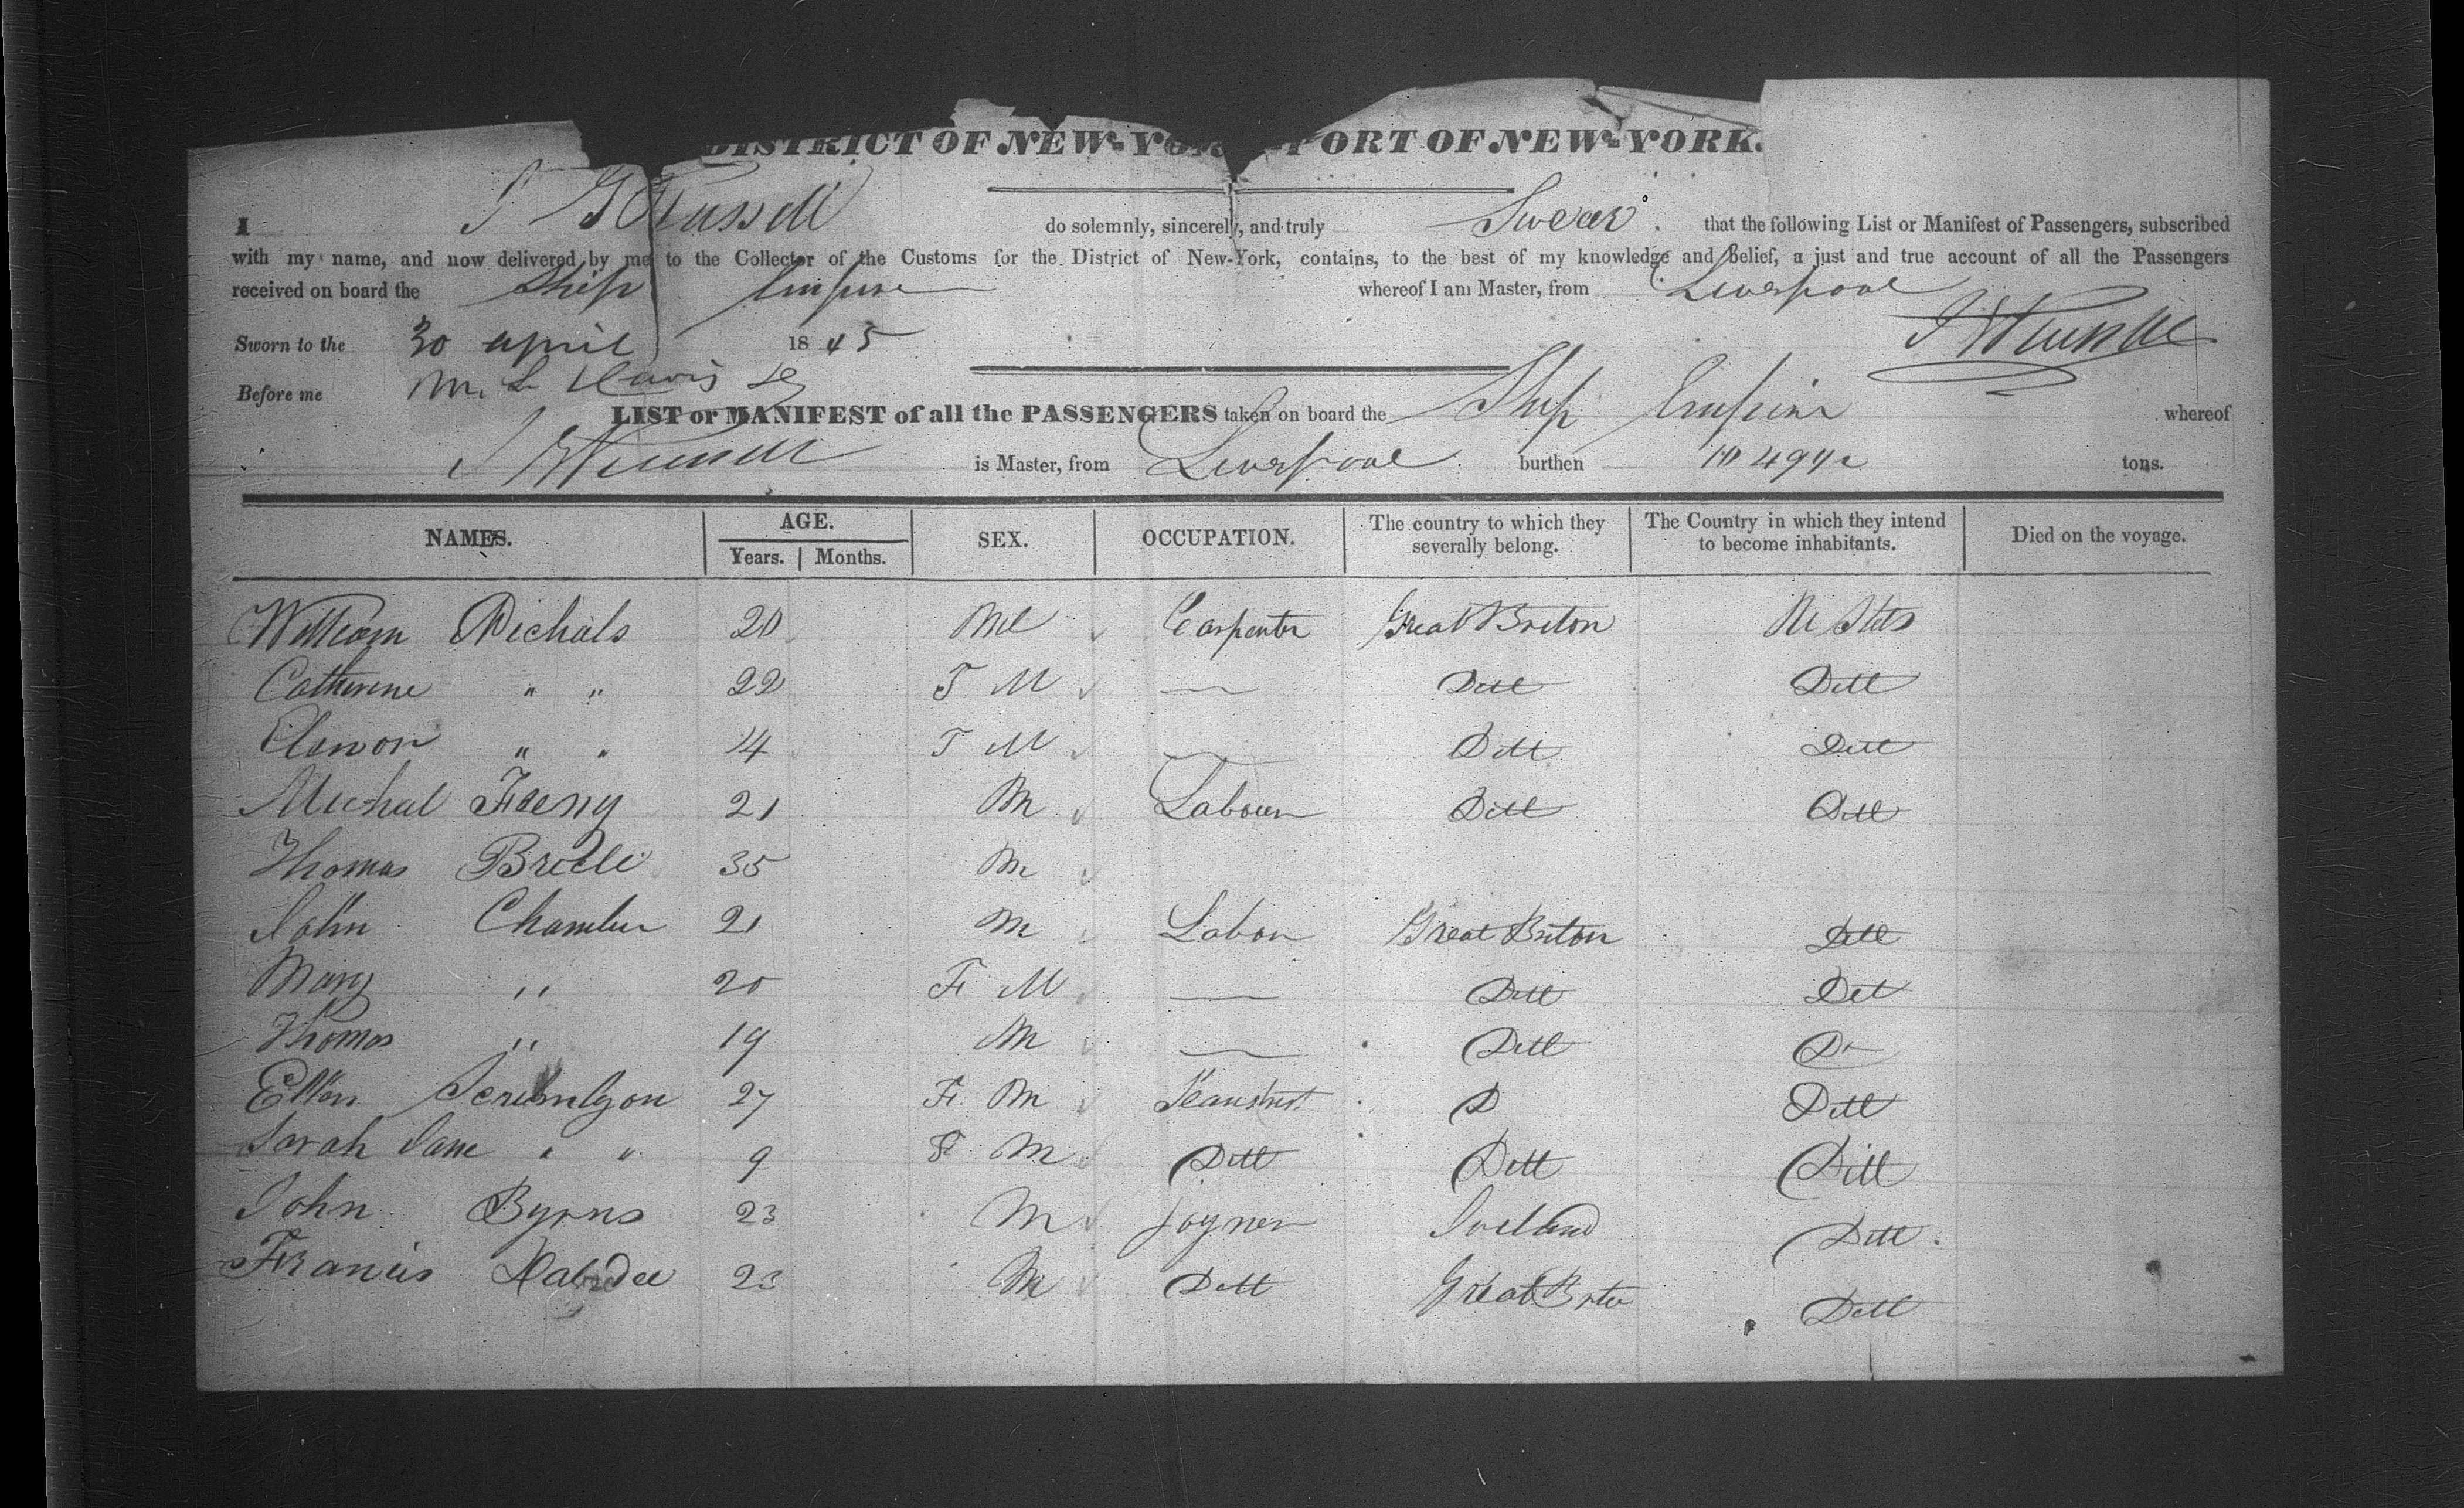 DISTRICT OF NEW-YORK PORT OF NEW-YORK.
I J G Russell do solemnly, sincerely, and truly Swear that the following List or Manifest of Passengers, subscribed
with my name, and now delivered by me to the Collector of the Customs for the District of New-York, contains, to the best of my knowledge and Belief, a just and true account of all the Passengers
received on board the Ship Empire whereof I am Master, from Liverpool
J G Russell
Sworn to the 30 april 1845
Before me M. L Davis
LIST or MANIFEST of all the PASSENGERS taken on board the Ship Empire whereof
J G Russell is Master, from Liverpool burthen tons.
NAMES. AGE. SEX. OCCUPATION. The country to which they severally belong. The Country in which they intend to become inhabitants. Died on the voyage.
Years. Months.
William Nichals 20 Ml Carpenter Great Briton
Catherine " " 22 F M — Ditt Ditt
Elenor " " 14 F M — Ditt Ditt
Michal Feeny 21 M Labour Ditt Ditt
Thomas 35 M
John Chamber 21 M Labor Great Briton Ditt
Mary " 20 F M — Ditt Dit
Thomas " 19 M — Ditt D
Ellen 27 F M D Ditt
Sarah Jane " " 9 F M Ditt Ditt Ditt
John Byrns 23 M Joyner Ireland Ditt.
Francis 23 M Ditt Great Ditt